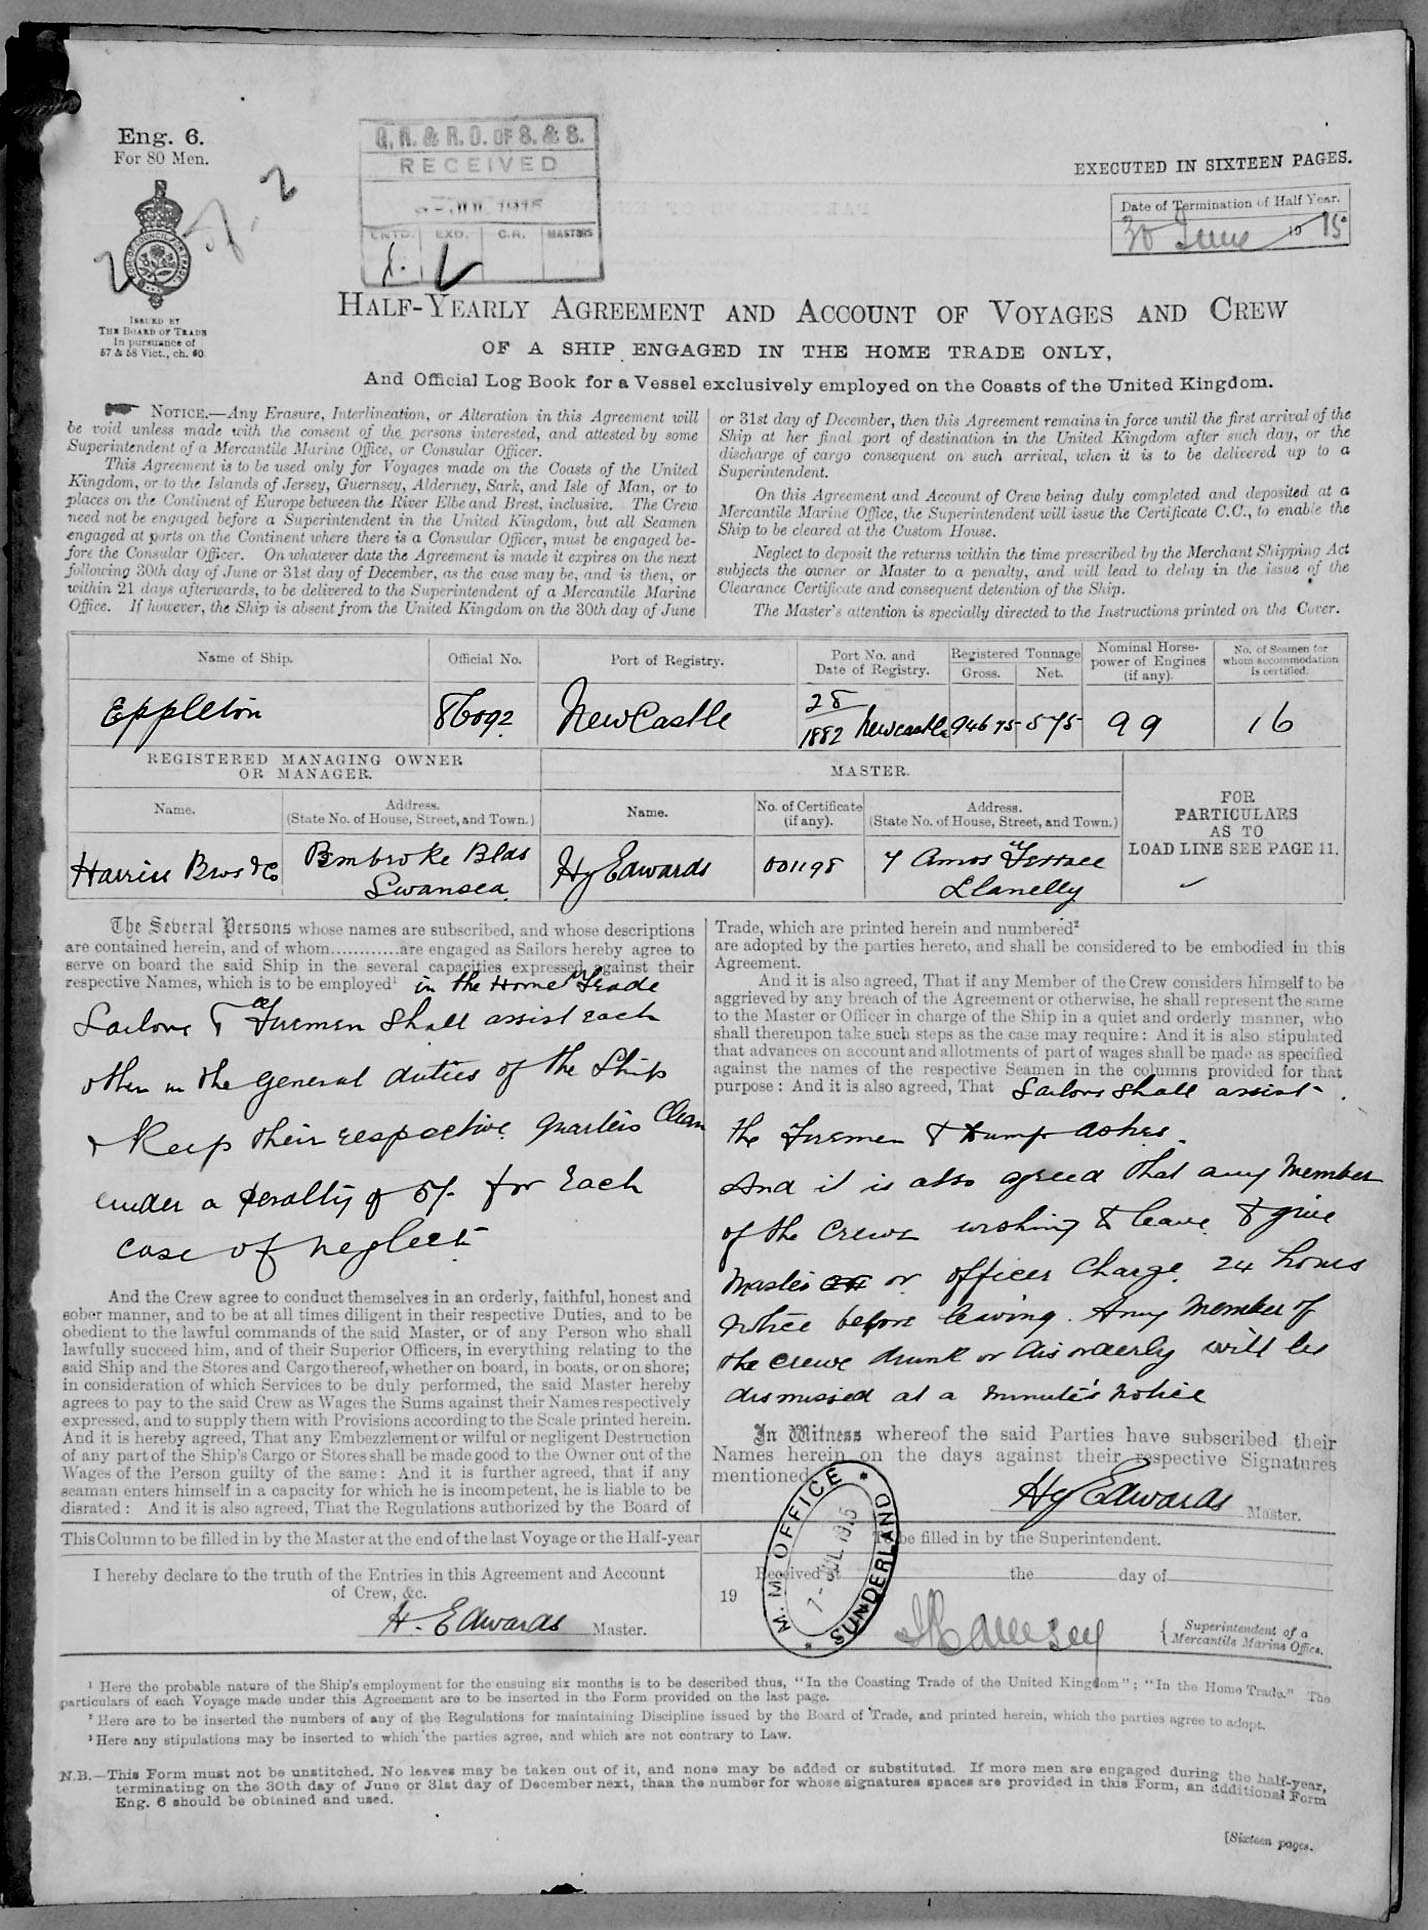 Eng. 6.
For 80 Men.
ISSUED BY
THE BOARD OF TRADE
In pursuance of
57 & 58 Vict., ch. 60.
RECEIVED
ENTD. EXD. C.R. MASTERS
EXECUTED IN SIXTEEN PAGES.
Date of Termination of Half Year.
30 June 1915
HALF-YEARLY AGREEMENT AND ACCOUNT OF VOYAGES AND CREW
OF A SHIP ENGAGED IN THE HOME TRADE ONLY,
And Official Log Book for a Vessel exclusively employed on the Coasts of the United Kingdom.
NOTICE.—Any Erasure, Interlineation, or Alteration in this Agreement will
be void unless made with the consent of the persons interested, and attested by some
Superintendent of a Mercantile Marine Office, or Consular Officer.
This Agreement is to be used only for Voyages made on the Coasts of the United
Kingdom, or to the Islands of Jersey, Guernsey, Alderney, Sark, and Isle of Man, or to
places on the Continent of Europe between the River Elbe and Brest, inclusive. The Crew
need not be engaged before a Superintendent in the United Kingdom, but all Seamen
engaged at ports on the Continent where there is a Consular Officer, must be engaged be-
fore the Consular Officer. On whatever date the Agreement is made it expires on the next
following 30th day of June or 31st day of December, as the case may be, and is then, or
within 21 days afterwards, to be delivered to the Superintendent of a Mercantile Marine
Office. If however, the Ship is absent from the United Kingdom on the 30th day of June
or 31st day of December, then this Agreement remains in force until the first arrival of the
Ship at her final port of destination in the United Kingdom after such day, or the
discharge of cargo consequent on such arrival, when it is to be delivered up to a
Superintendent.
On this Agreement and Account of Crew being duly completed and deposited at a
Mercantile Marine Office, the Superintendent will issue the Certificate C.C., to enable the
Ship to be cleared at the Custom House.
Neglect to deposit the returns within the time prescribed by the Merchant Shipping Act
subjects the owner or Master to a penalty, and will lead to delay in the issue of the
Clearance Certificate and consequent detention of the Ship.
The Master's attention is specially directed to the Instructions printed on the Cover.
Name of Ship. Official No. Port of Registry. Port No. and Date of Registry. Registered Tonnage Gross. Net. Nominal Horse-power of Engines (if any). No. of Seamen for whom accommodation is certified.
Eppleton 86092 Newcastle 28/1882 Newcastle 946 75 575 99 16
REGISTERED MANAGING OWNER
OR MANAGER.
MASTER.
Name. Address. (State No. of House, Street, and Town.) Name. No. of Certificate (if any). Address. (State No. of House, Street, and Town.)
FOR
PARTICULARS
AS TO
LOAD LINE SEE PAGE 11.
Harris Bros & Co Pembroke Blds Swansea Hy Edwards 001198 7 Amos Terrace Llanelly
The Several Persons whose names are subscribed, and whose descriptions
are contained herein, and of whom............are engaged as Sailors hereby agree to
serve on board the said Ship in the several capacities expressed against their
respective Names, which is to be employed¹ in the Home Trade
Sailors & Firemen shall assist each
other in the general duties of the Ship
& Keep their respective quarters Clean
under a penalty of 5/- for Each
case of neglect
And the Crew agree to conduct themselves in an orderly, faithful, honest and
sober manner, and to be at all times diligent in their respective Duties, and to be
obedient to the lawful commands of the said Master, or of any Person who shall
lawfully succeed him, and of their Superior Officers, in everything relating to the
said Ship and the Stores and Cargo thereof, whether on board, in boats, or on shore;
in consideration of which Services to be duly performed, the said Master hereby
agrees to pay to the said Crew as Wages the Sums against their Names respectively
expressed, and to supply them with Provisions according to the Scale printed herein.
And it is hereby agreed, That any Embezzlement or wilful or negligent Destruction
of any part of the Ship's Cargo or Stores shall be made good to the Owner out of the
Wages of the Person guilty of the same: And it is further agreed, that if any
seaman enters himself in a capacity for which he is incompetent, he is liable to be
disrated: And it is also agreed, That the Regulations authorized by the Board of
Trade, which are printed herein and numbered²
are adopted by the parties hereto, and shall be considered to be embodied in this
Agreement.
And it is also agreed, That if any Member of the Crew considers himself to be
aggrieved by any breach of the Agreement or otherwise, he shall represent the same
to the Master or Officer in charge of the Ship in a quiet and orderly manner, who
shall thereupon take such steps as the case may require: And it is also stipulated
that advances on account and allotments of part of wages shall be made as specified
against the names of the respective Seamen in the columns provided for that
purpose: And it is also agreed, That Sailors shall assist
the Firemen to dump ashes.
And it is also agreed that any Member
of the Crew wishing to leave to give
Master or officer Charge 24 hours
notice before leaving. Any Member of
the crew drunk or disorderly will be
dismissed at a minute's notice
In Witness whereof the said Parties have subscribed their
Names herein on the days against their respective Signatures
mentioned
Hy Edwards Master.
This Column to be filled in by the Master at the end of the last Voyage or the Half-year
I hereby declare to the truth of the Entries in this Agreement and Account
of Crew, &c.
H. Edwards Master.
be filled in by the Superintendent.
Received at the day of
19
M. M. OFFICE
7 - JUL 1915
SUNDERLAND
Superintendent of a
Mercantile Marine Office.
¹ Here the probable nature of the Ship's employment for the ensuing six months is to be described thus, "In the Coasting Trade of the United Kingdom"; "In the Home Trade." The
particulars of each Voyage made under this Agreement are to be inserted in the Form provided on the last page.
² Here are to be inserted the numbers of any of the Regulations for maintaining Discipline issued by the Board of Trade, and printed herein, which the parties agree to adopt.
³ Here any stipulations may be inserted to which the parties agree, and which are not contrary to Law.
N.B.—This Form must not be unstitched. No leaves may be taken out of it, and none may be added or substituted. If more men are engaged during the half-year,
terminating on the 30th day of June or 31st day of December next, than the number for whose signatures spaces are provided in this Form, an additional Form
Eng. 6 should be obtained and used.
[Sixteen pages.